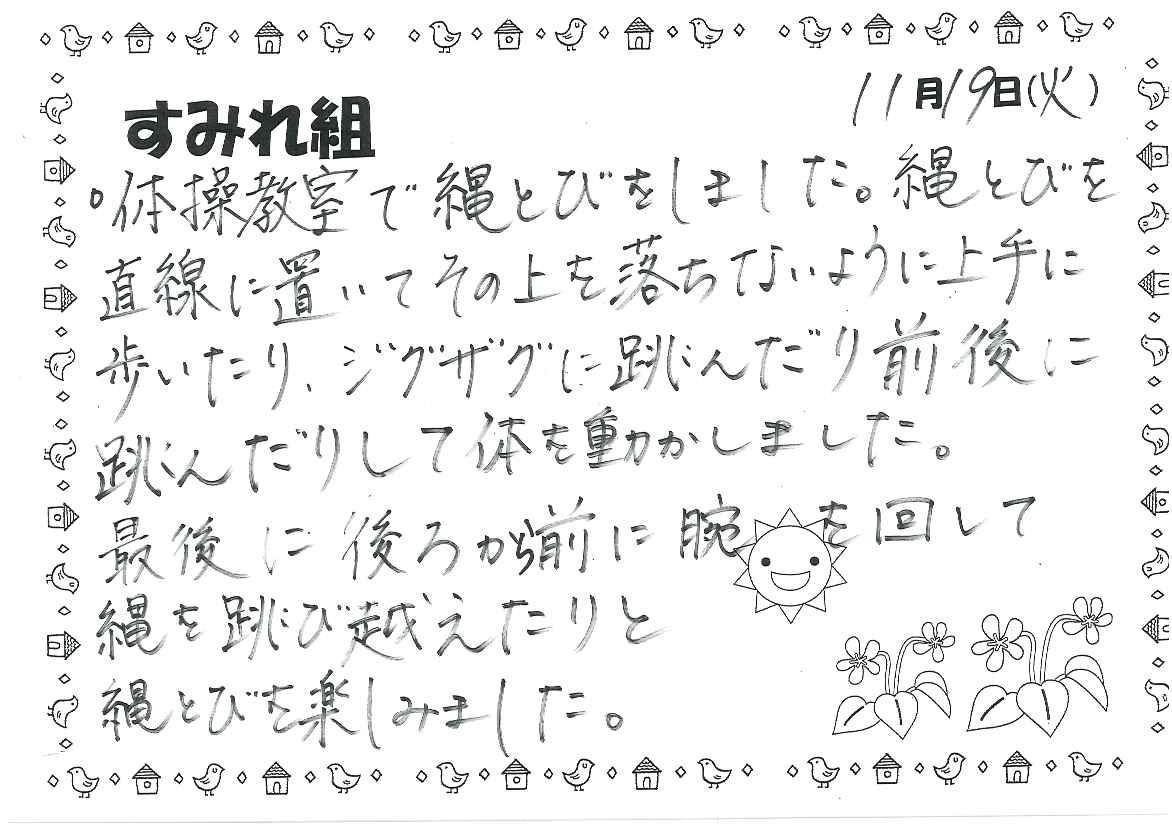 11月19日(火)
すみれ組
。体操教室で縄とびをしました。縄とびを
直線に置いてその上を落ちないように上手に
歩いたり、ジグザグに跳んだり前後に
跳んだりして体を動かしました。
最後に後ろから前に腕を回して
縄を跳び越えたりと
縄とびを楽しみました。